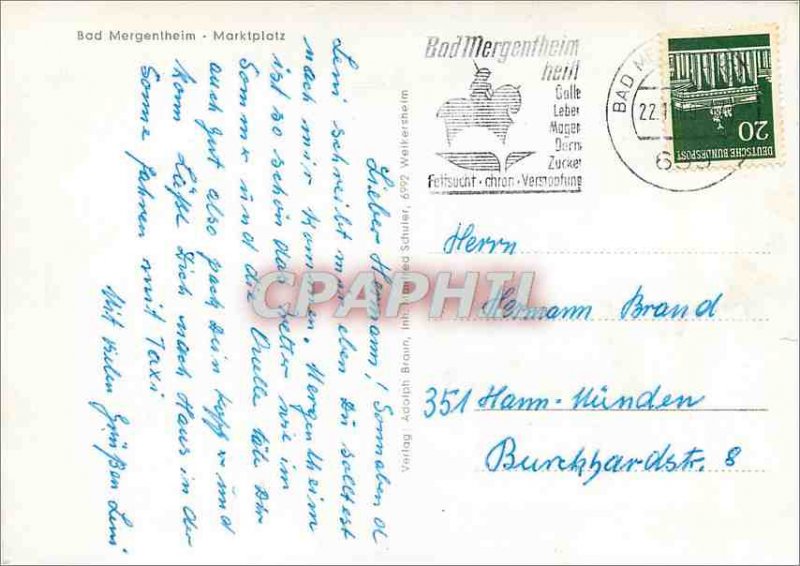 Bad Mergentheim · Marktplatz
Lieber Hermann! Sonnabend
Leni schreibt mir eben Du solltest
nach mir kommen. Mergentheim
ist so schön das Wetter wie im
Sommer und die Quelle täte Dir
auch gut also pack Dein Koff und
komm Läßt Dich nach Haus in der
Sonne fahren mit Taxi
Mit vielen Grüßen Leni
Verlag: Adolph Braun, Inh. Schuler, 6992 Weikersheim
Bad Mergentheim
heilt
Galle
Leber
Magen
Darm
Zucker
Fettsucht · chron · Verstopfung
BAD ME
22.1
699
20
DEUTSCHE BUNDESPOST
Herrn
Hermann Brand
351 Hann.-Münden
Burckhardstr. 8
CPAPHIL